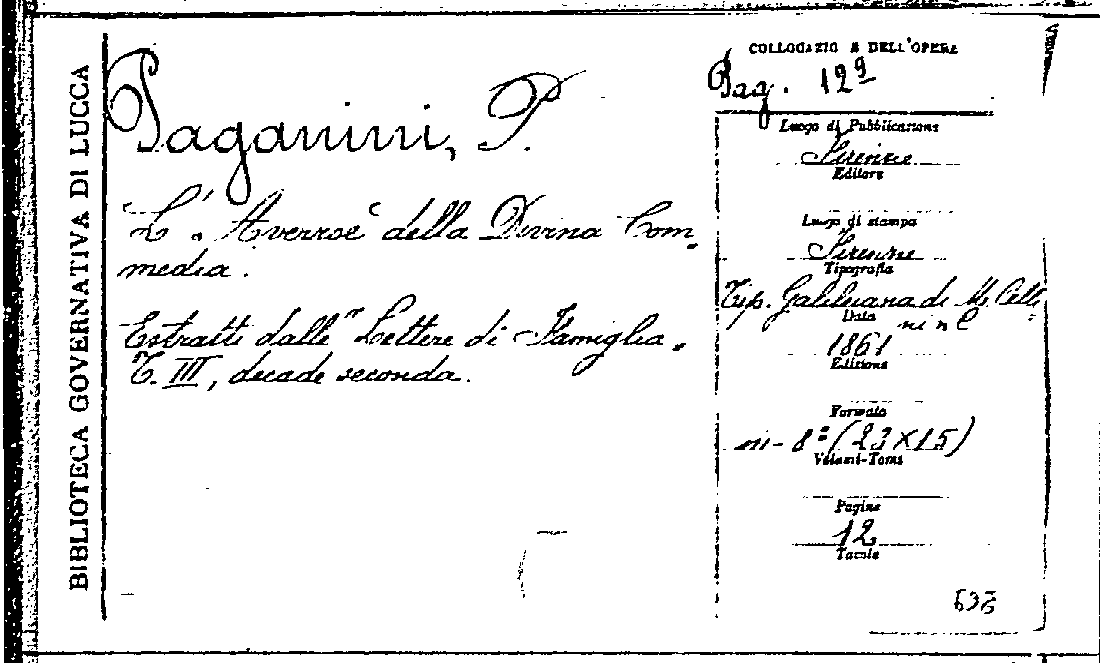 BIBLIOTECA GOVERNATIVA DI LUCCA
Paganini, P.
L'"Averroè" della Divina Com-
media.
Estratti dalle "Lettere di Famiglia"
T. III, decade seconda.
COLLOCAZIONE DELL'OPERA
Pag. 129
Luogo di Pubblicazione
Firenze
Editore
Luogo di stampa
Firenze
Tipografia
Tip. Galileiana di M. Celli-
ni e C
Data
1861
Edizione
Formato
in-8° (23×15)
Volumi-Tomi
Pagine
12
Tavole